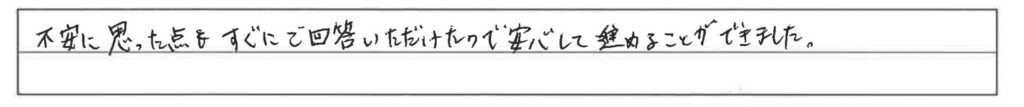 不安に思った点をすぐにご回答いただけたので安心して進めることができました。